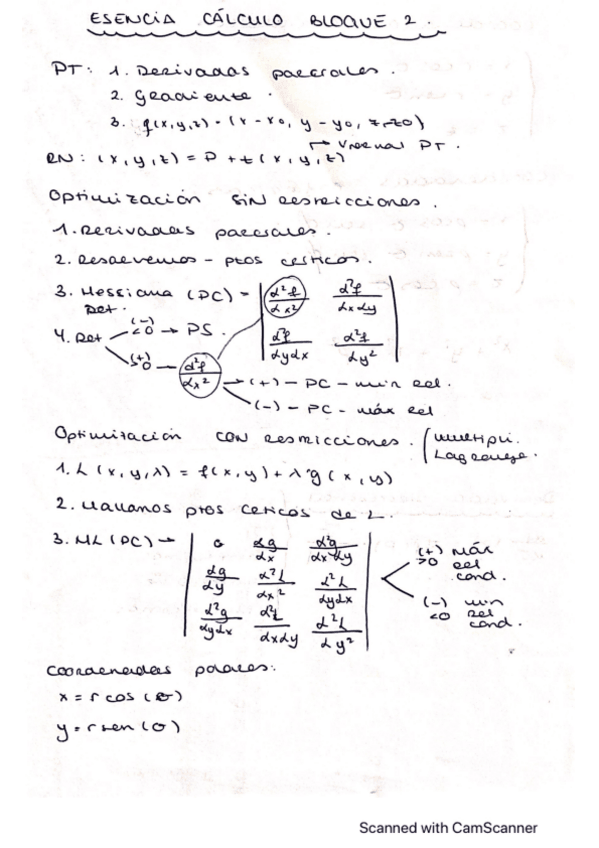 ESENCIA CÁLCULO BLOQUE 2.
PT: 1. Derivadas parciales.
2. Gradiente.
3. f(x,y,z) · (x - x0, y - y0, z, z0)
→ Vnormal PT.
RN: (x, y, z) = P + t(x, y, z)
Optimización sin restricciones.
1. Derivadas parciales.
2. Resolvemos - ptos críticos.
3. Hessiana (PC) = | d²f/dx² d²f/dxdy |
Det. | d²f/dydx d²f/dy² |
4. Det (-) <0 → PS.
(+) >0 — d²f/dx² → (+) - PC - min rel.
(-) - PC - máx rel
Optimización con restricciones. (multipli. Lagrange.
1. L(x, y, λ) = f(x, y) + λ·g(x, y)
2. Hallamos ptos críticos de L.
3. HL (PC) → | 0 dg/dx d²g/dxdy | (+) >0 máx rel cond.
| dg/dy d²L/dx² d²L/dydx |
| d²g/dydx d²L/dxdy d²L/dy² | (-) <0 min rel cond.
Coordenadas polares:
x = r cos (θ)
y = r sen (θ)
Scanned with CamScanner